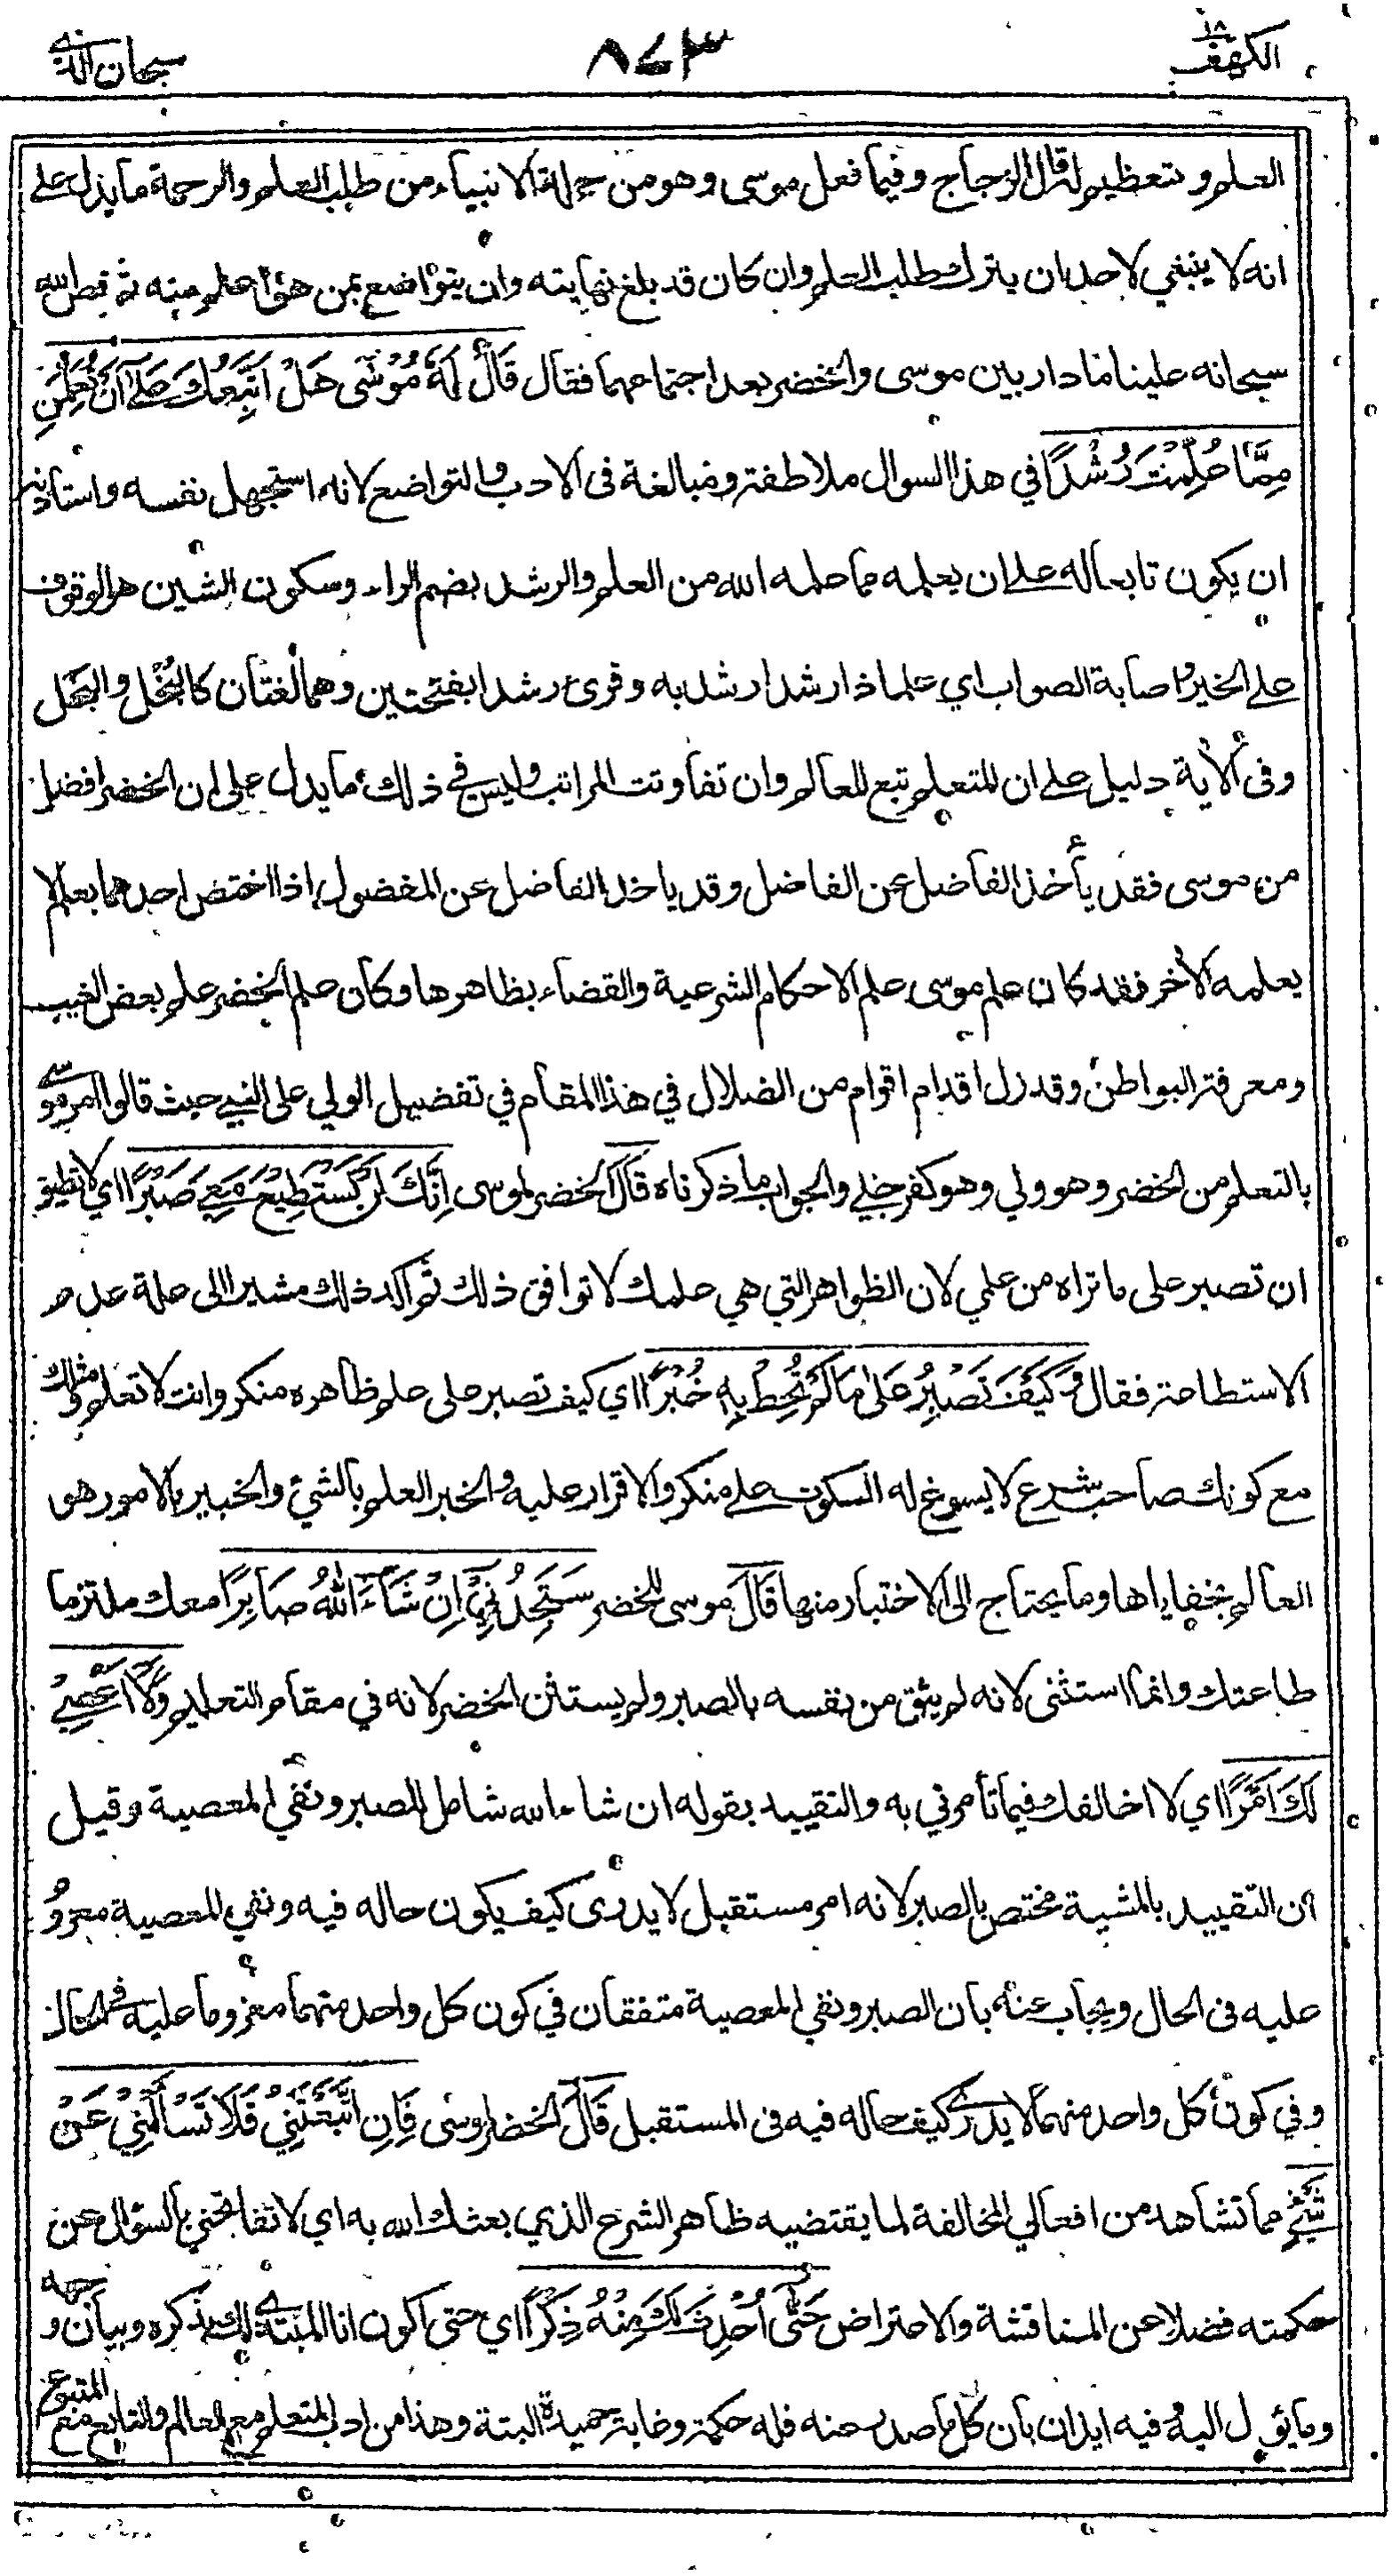 الكهف ١٨
٨٧٣
سبحان الذي
العلم وتعظيم له قال الزجاج وفيما فعل موسى وهو من جملة الانبياء من طلب العلم والرحمة ما يدل على
انه لا ينبغي لاحد ان يترك طلب العلم وان كان قد بلغ نهايته وان يتواضع لمن هو أعلم منه ثم قص الله
سبحانه علينا ما دار بين موسى والخضر بعد اجتماعهما فقال قَالَ لَهُ مُوْسٰى هَلْ اَتَّبِعُكَ عَلٰى اَنْ تُعَلِّمَنِ
مِمَّا عُلِّمْتَ رُشْدًا في هذا السوال ملاطفة ومبالغة فى الادب والتواضع لانه استجهل نفسه واستاذنه
ان يكون تابعا له على ان يعلمه مما علمه الله من العلم والرشد بضم الراء وسكون الشين هو الوقوف
على الخير واصابة الصواب اي علما ذا رشد ارشد به وقرئ رشدا بفتحتين وهما لغتان كالبُخْل والبَخَل
وفى الأية دليل على ان المتعلم تبع للعالم وان تفاوتت المراتب وليس في ذلك ما يدل على ان الخضر افضل
من موسى فقد يأخذ الفاضل عن الفاضل وقد ياخذ الفاضل عن المفضول اذا اختص احدهما بعلم لا
يعلمه الأخر فقد كان علم موسى علم الاحكام الشرعية والقضاء بظاهرها وكان علم الخضر علم بعض الغيب
ومعرفة البواطن وقد زل اقدام اقوام من الضلال في هذا المقام في تفضيل الولي على النبي حيث قالوا امر موسى
بالتعلم من الخضر وهو ولي وهو كفر جلي والجواب ما ذكرناه قَالَ الخضر لموسى اِنَّكَ لَنْ تَسْتَطِيْعَ مَعِيَ صَبْرًا اي لا تطيق
ان تصبر على ما تراه من علمي لان الظواهر التي هي علمك لا توافق ذلك ثم اكد ذلك مشيرا الى علة عدم
الاستطاعة فقال وَ كَيْفَ تَصْبِرُ عَلٰى مَا لَمْ تُحِطْ بِهٖ خُبْرًا اي كيف تصبر على علم ظاهره منكر وانت لا تعلم ومثلك
مع كونك صاحب شرع لا يسوغ له السكوت على منكر والاقرار عليه والخبر العلم بالشئ والخبير بالامور هو
العالم بخفاياها وما يحتاج الى الاختبار منها قَالَ موسى للخضر سَتَجِدُنِيْ اِنْ شَآءَ اللّٰهُ صَابِرًا معك ملتزما
طاعتك وانما استثنى لانه لم يثق من نفسه بالصبر ولم يستثن الخضر لانه في مقام التعليم وَّلَآ اَعْصِيْ
لَكَ اَمْرًا اي لا اخالفك فيما تأمرني به والتقييد بقوله ان شاء الله شامل للصبر ونفي المعصية وقيل
ان التقييد بالمشية مختص بالصبر لانه امر مستقبل لا يدرى كيف يكون حاله فيه ونفي المعصية معزوم
عليه فى الحال ويجاب عنه بان الصبر ونفي المعصية متفقان في كون كل واحد منهما معزوما عليه في الحال
وفي كون كل واحد منهما لا يدري كيف حاله فيه فى المستقبل قَالَ الخضر لموسى فَاِنِ اتَّبَعْتَنِيْ فَلَا تَسْأَلْنِيْ عَنْ
شَيْءٍ مما تشاهد من افعالي المخالفة لما يقتضيه ظاهر الشرع الذي بعثك الله به اي لا تفاتحني بالسؤال عن
حكمته فضلا عن المناقشة والاعتراض حَتّٰى اُحْدِثَ لَكَ مِنْهُ ذِكْرًا اي حتى اكون انا المبتدي لك بذكره وبيان وجهه
وما يؤل اليه وفيه ايذان بأن كل ما صدر عنه فله حكمة وغاية حميدة البتة وهذا من ادب المتعلم مع العالم والتابع مع المتبوع